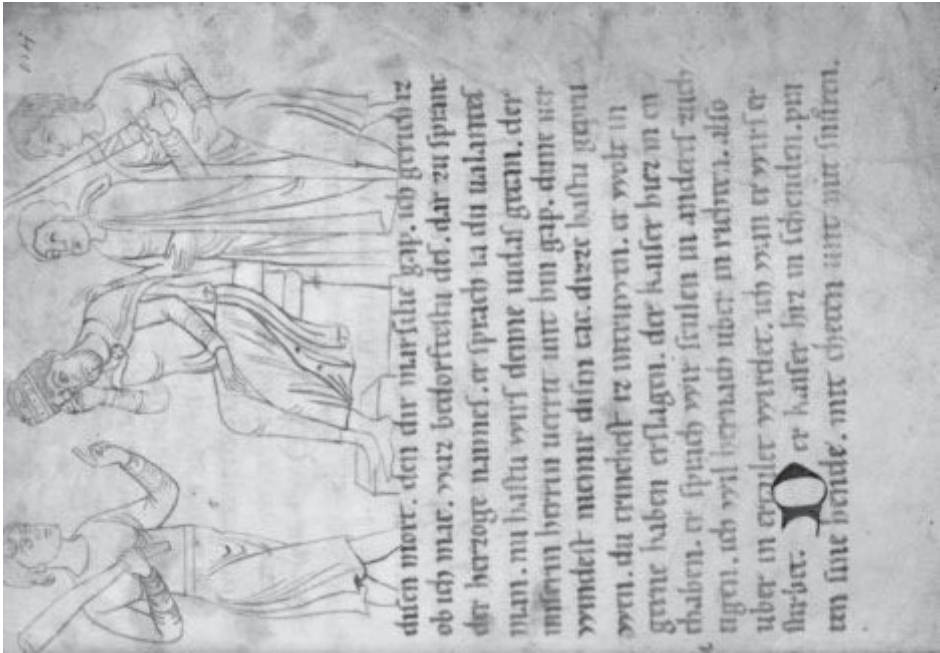 disen mort. den dir marsilie gap. ich geriche iz
ob ich mac. waz bedorftestu des. dar zu spranc
der herzoge naimes. er sprach ia du ualantes
man. nu hastu wirs denne iudas getan. der
unsern herrin uerriet unt hin gap. dune uer
windest niemir disin tac. dizze hastu gepru
wen. du trinchest iz intriwen. er wolt in
gerne haben erslagen. der kaiser hiez in en
thaben. er sprach wir sculen in anders zuch
tigen. ich wil hernach uber in richten. also
uber in erteilet wirdet. ich wan er wirs er
sturbet. Der kaiser hiz in schenden. pin
ten sine hende. mit cheten unt mit snuren.